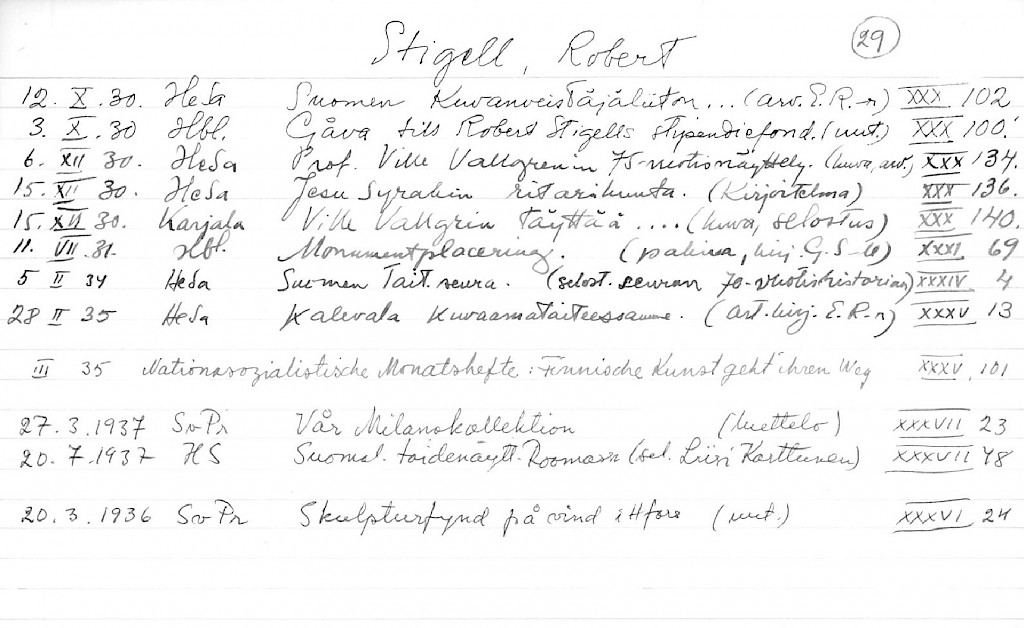 Stigell, Robert 29
12. X. 30. HeSa Suomen Kuvanveistäjäliiton... (arv. E.R-n) XXX 102
3. X. 30 Hbl. Gåva till Robert Stigells stipendiefond. (uut.) XXX 100.
6. XII 30. HeSa Prof. Ville Vallgrenin 75-vuotisnäyttely. (kuva, arv.) XXX 134.
15. XII 30. HeSa Jesu Syrakin ritarikunta. (Kirjoitelma) XXX 136.
15. XII 30. Karjala Ville Vallgrin täyttää .... (kuva, selostus) XXX 140.
11. VII 31. Hbl. Monumentplacering. (palina, kirj. G. S-) XXXI 69
5 II 34 HeSa Suomen Tait. seura. (selost. seuran 70-vuotishistorian) XXXIV 4
28 II 35 HeSa Kalevala Kuvaamataiteessamme. (art. kirj. E.R-n) XXXV 13
III 35 Nationasozialistische Monatshefte: Finnische Kunst geht ihren Weg XXXV, 101
27. 3. 1937 SvPr Vår Milanokollektion (luettelo) XXXVII 23
20. 7. 1937 HS Suomal. taidenäytt. Roomassa (sel. Liisi Karttunen) XXXVII 48
20. 3. 1936 SvPr Skulpturfynd på vind i Hfors (uut.) XXXVI 24